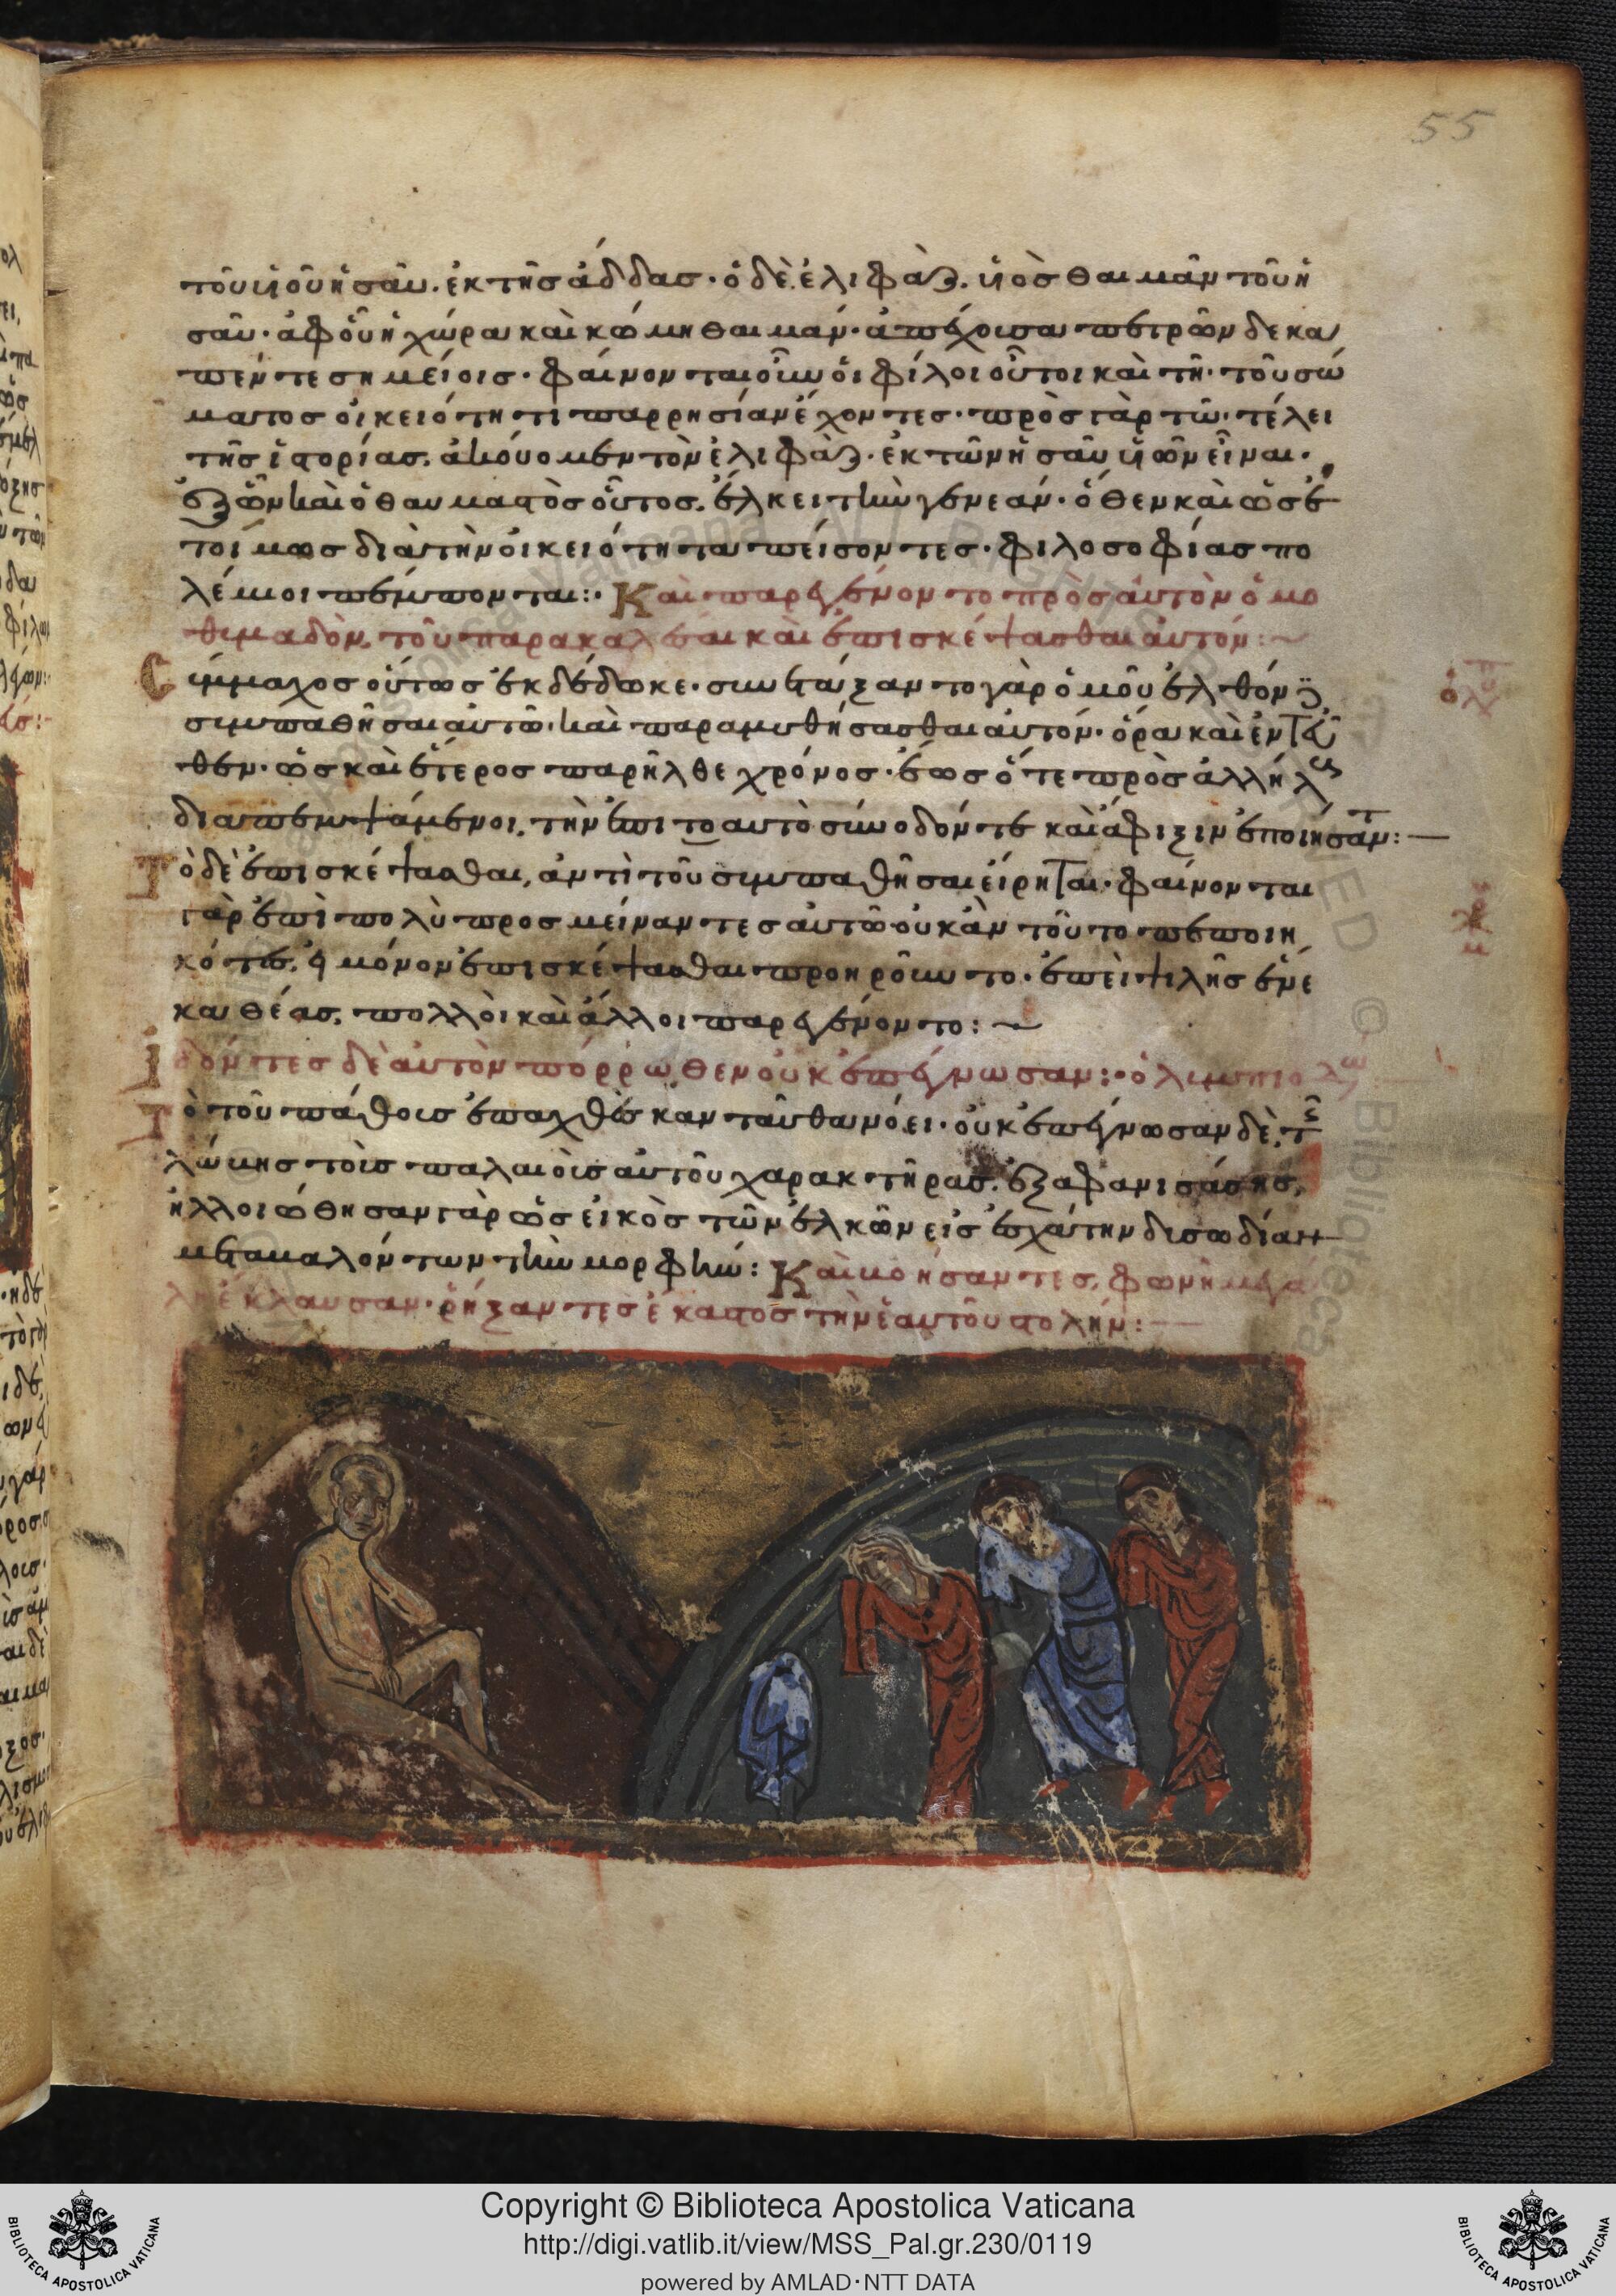 55
τοῦ υἱοῦ ἡσαῦ. ἐκ τῆς ἀδδας· ὁ δὲ ἐλιφὰζ. υἱὸς θαιμὰν τοῦ ἡ
σαῦ· ἀφ οὗ ἡ χώρα καὶ κώμη θαιμάν· ἀπέχουσα πετρῶν δεκα
πέντε σημείοις· φαίνονται οὖν οἱ φίλοι οὗτοι καὶ τῆ τοῦ σώ
ματος οἰκειότητι παρρησίαν ἔχοντες· πρὸς γὰρ τῶ τέλει
τῆς ἱστορίας. ἀκούομεν τὸν ἐλιφὰζ. ἐκ τῶν ἡσαῦ υἱῶν εἶναι·
ἐξ ὧν καὶ ὁ θαυμαστὸς οὗτος. ἕλκει τὴν γενεάν· ὅθεν καὶ ὡς ἑ
τοίμως διὰ τὴν οἰκειότητα πείσοντες· φιλοσοφίας πο
λέμιοι πέμπονται:· Καὶ παρεγένοντο πρὸς αὐτὸν ὁμο
θυμαδὸν, τοῦ παρακαλέσαι καὶ ἐπισκέψασθαι αὐτόν:~
Σύμμαχος οὕτως ἐκδέδωκε· συνετάξαντο γὰρ ὁμοῦ ἐλθόντες
συμπαθῆσαι αὐτῶ· καὶ παραμυθήσασθαι αὐτόν· ὅρα καὶ ἐντεῦ
θεν· ὡς καὶ ἕτερος παρῆλθε χρόνος· ἕως ὅτε πρὸς ἀλλήλους
διαπεμψάμενοι, τὴν ἐπιτοαυτὸ σύνοδόν τε καὶ ἄφιξιν ἐποιήσαντ:—
Τὸ δὲ ἐπισκέψασθαι, ἀντὶ τοῦ συμπαθῆσαι εἴρηται· φαίνονται
γὰρ ἐπὶ πολὺ προσμείναντες αὐτῶ οὐκ ἂν τοῦτο πεποιη
κότες, εἰ μόνον ἐπισκέψασθαι προηροῦντο· ἐπεὶ ψιλῆς ἕνε
κα θέας, πολλοὶ καὶ ἄλλοι παρεγένοντο:~
Ἰδόντες δὲ αὐτὸν πόρρωθεν οὐκ ἐπέγνωσαν:· ὀλυμπιο
Τὸ τοῦ πάθους ἐπαχθὲς κανταῦθα νόει· οὐκ ἐπέγνωσαν δὲ, τῆς
λώβης τοῖς παλαιοῖς αὐτοῦ χαρακτῆρας. ἐξαφανισάσης,
ἠλλοιώθησαν γὰρ ὡς εἰκὸς τῶν ἑλκῶν εἰς ἐσχάτην δυσωδίαν
μεταβαλόντων τὴν μορφήν: Καὶ βοήσαντες, φωνῆ μεγά
λη ἔκλαυσαν· ῥήξαντες ἕκαστος τὴν ἑαυτοῦ στολήν:—
Copyright © Biblioteca Apostolica Vaticana
http://digi.vatlib.it/view/MSS_Pal.gr.230/0119
powered by AMLAD·NTT DATA
BIBLIOTECA APOSTOLICA VATICANA
BIBLIOTECA APOSTOLICA VATICANA